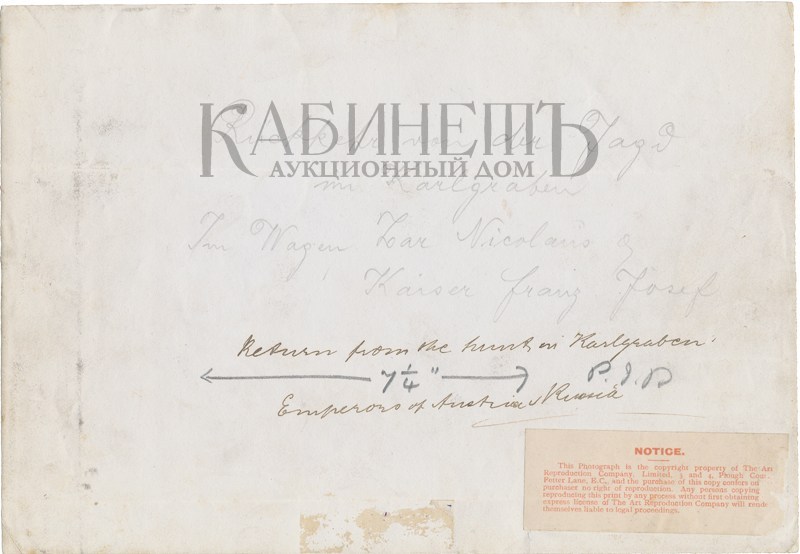 КАБИНЕТЪ
АУКЦИОННЫЙ ДОМ
Rückkehr von der Jagd
im Karlgraben
Im Wagen Zar Nicolaus &
Kaiser Franz Josef
Return from the hunt in Karlgraben.
7 1/4"
Emperors of Austria & Russia
NOTICE.
This Photograph is the copyright property of The Art
Reproduction Company, Limited, 3 and 4, Plough Court,
Fetter Lane, E.C., and the purchase of this copy confers on
purchaser no right of reproduction. Any persons copying
reproducing this print by any process without first obtaining
express license of The Art Reproduction Company will rende
themselves liable to legal proceedings.